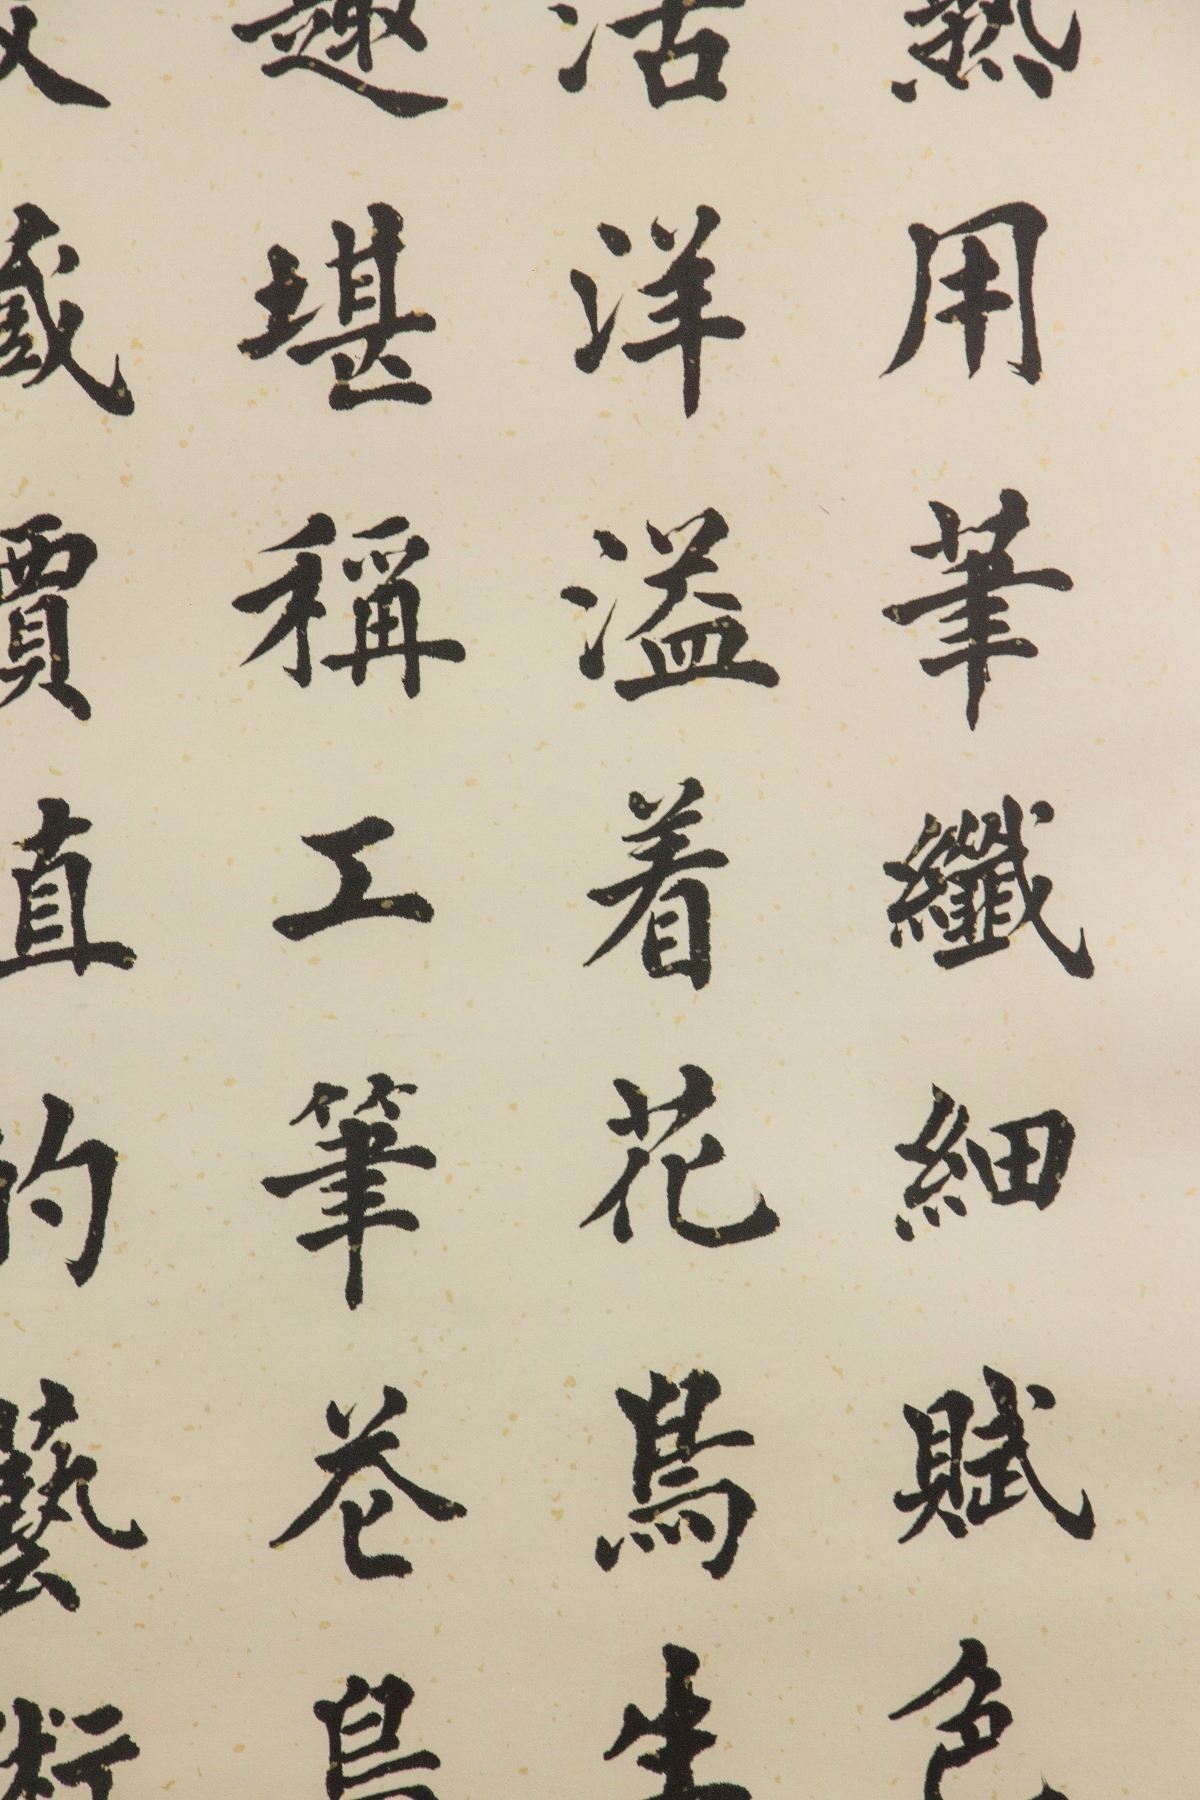 用筆纖細賦色
活洋溢着花鳥生
趣堪稱工筆花鳥
藏價值的藝術